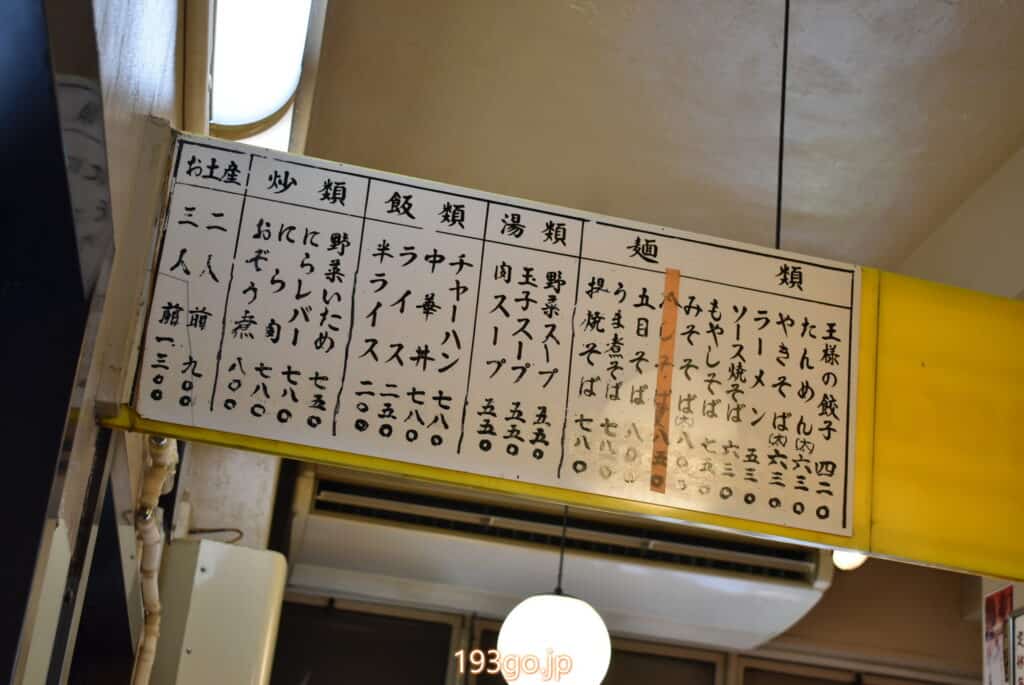 麺類
王様の餃子 四二〇
たんめん(大) 六三〇
やきそば(大) 六三〇
ラーメン 五三〇
ソース焼そば 六三〇
もやしそば 七五〇
みそそば(大) 八〇〇
冷しそば 八五〇
五目そば 八〇〇
うま煮そば 七八〇
揚焼そば 七八〇
湯類
野菜スープ 五五〇
玉子スープ 五五〇
肉スープ 五五〇
飯類
チャーハン 七八〇
中華丼 七八〇
ライス 二五〇
半ライス 二〇〇
炒類
野菜いため 七五〇
にらレバー 七八〇
にら肉 七八〇
おぞう煮 八〇〇
お土産
二人前 九〇〇
三人前 一三〇〇
193go.jp